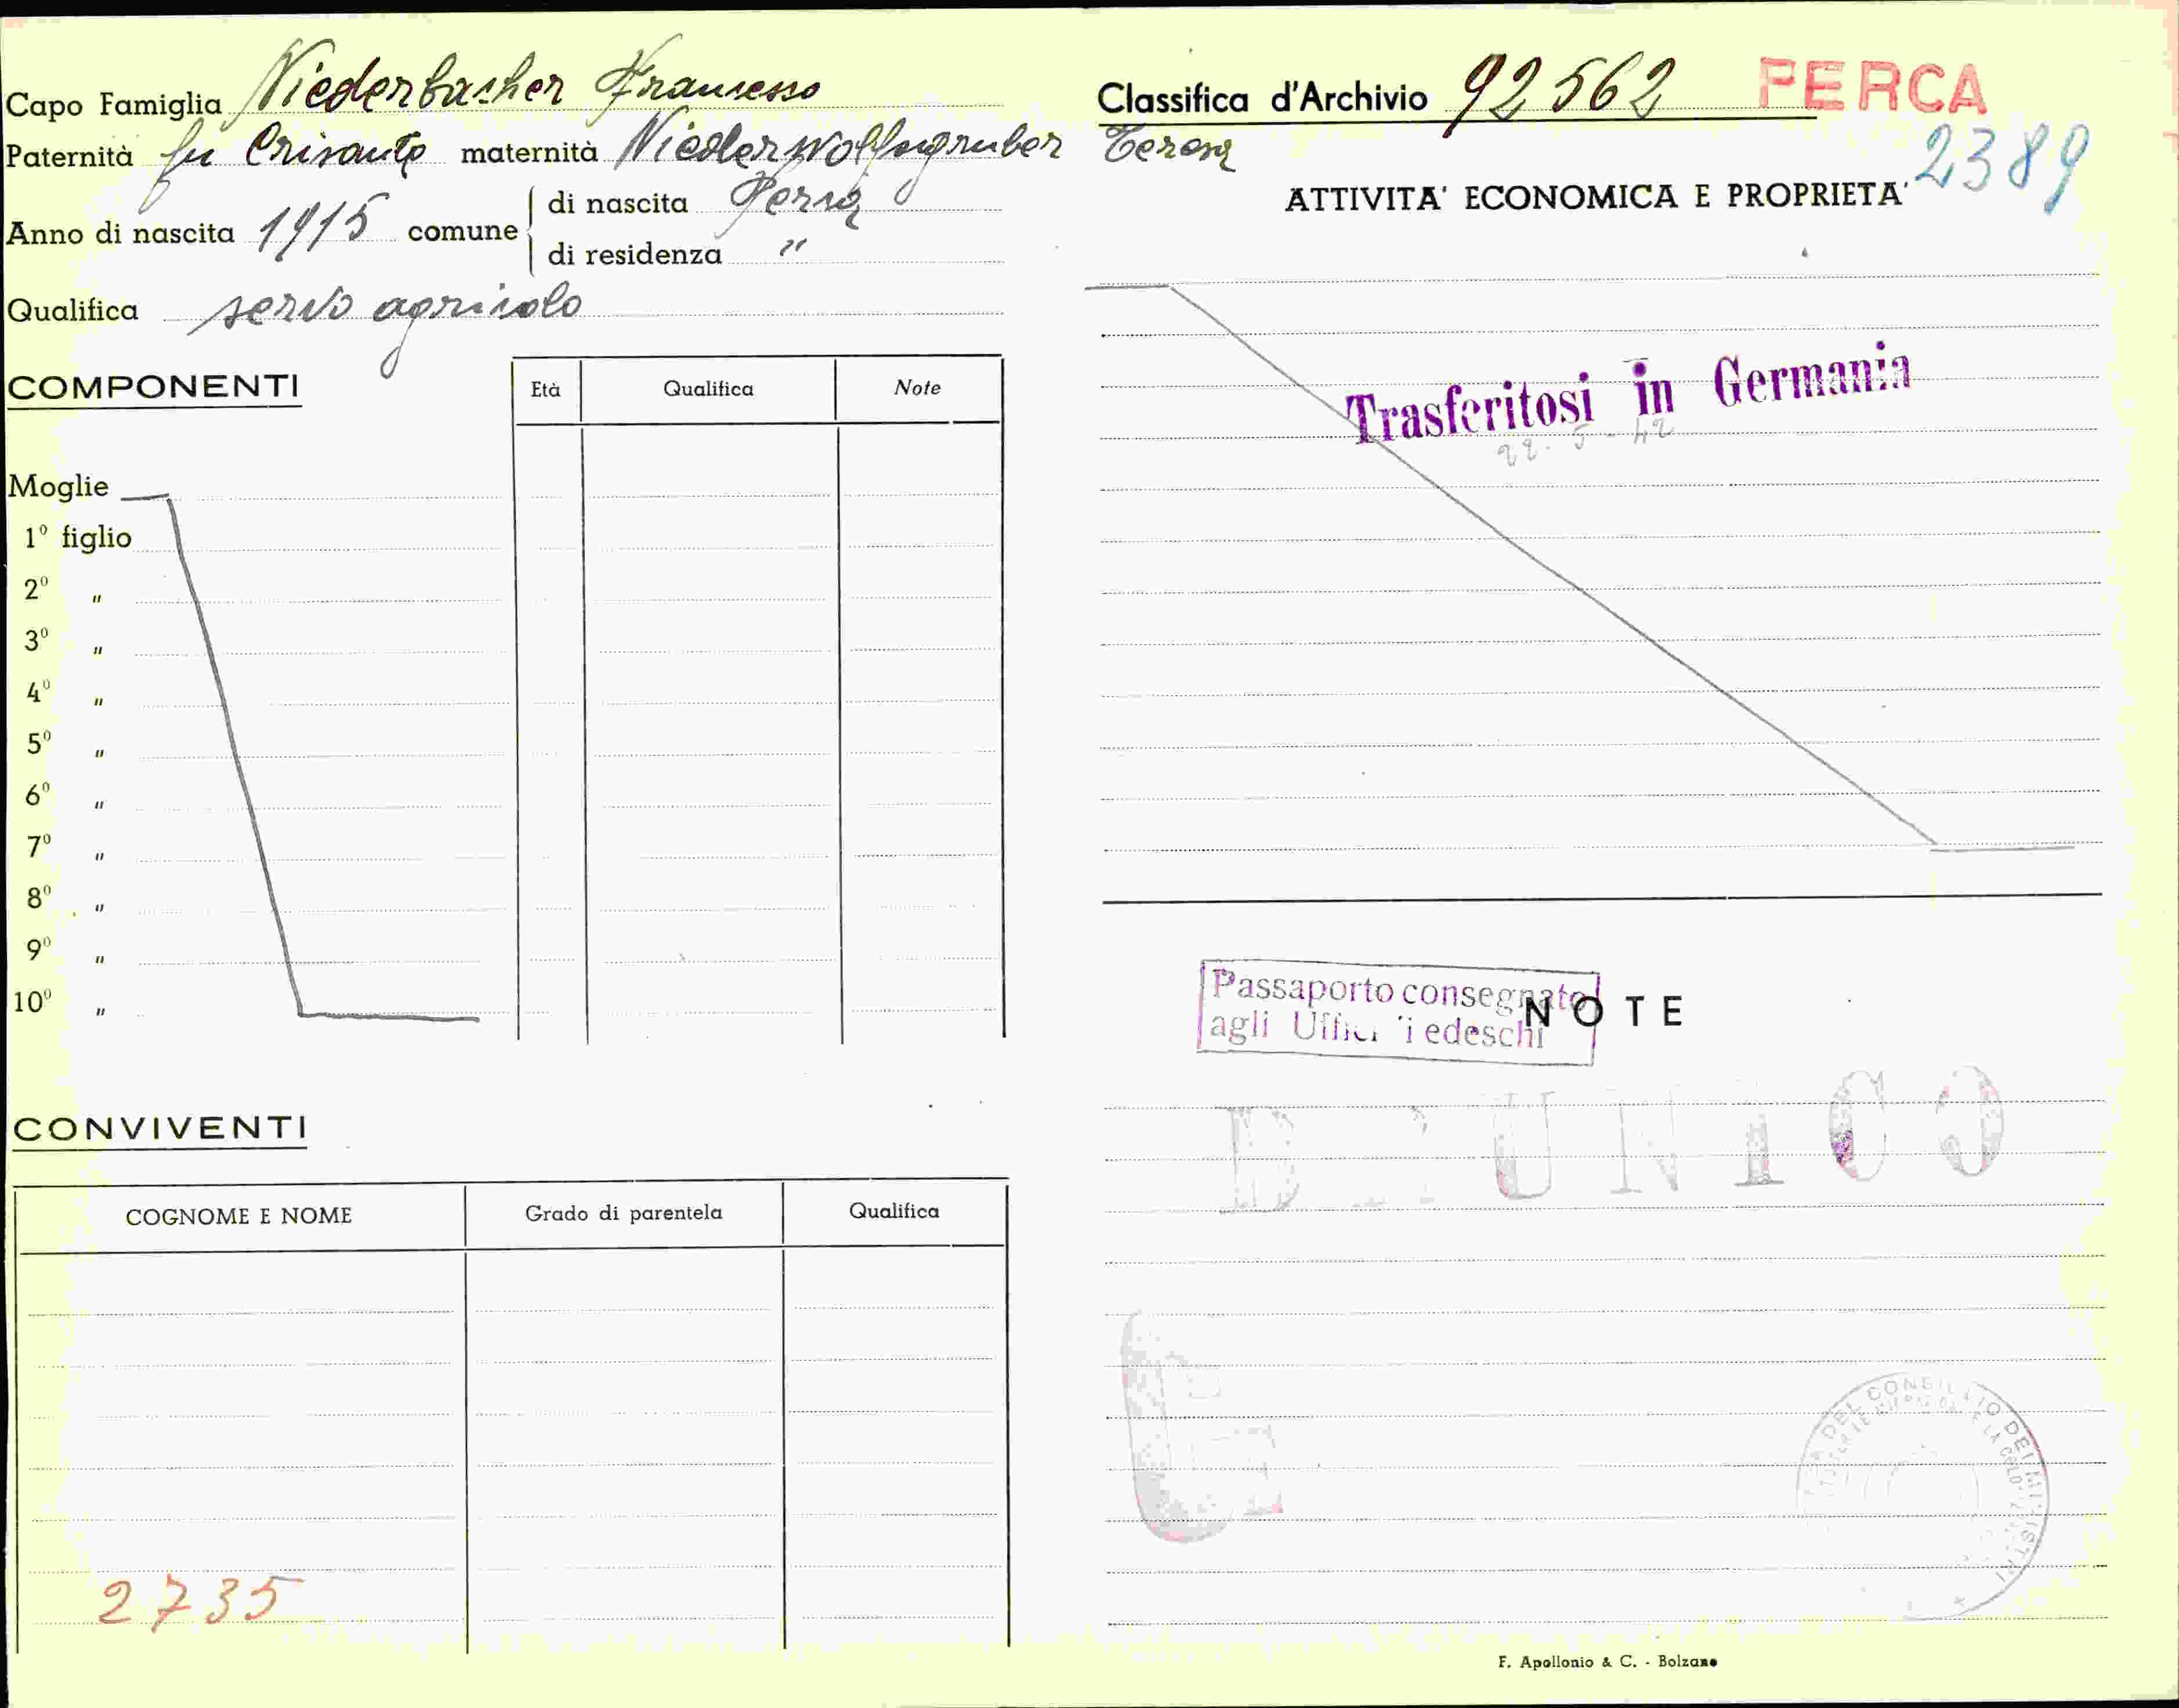 Capo Famiglia Niederbacher Francesco
Paternità fu Crisanto maternità Niederwolfsgruber Teresa
Anno di nascita 1915 comune
di nascita Perca
di residenza "
Qualifica servo agricolo
COMPONENTI
Età Qualifica Note
Moglie
1º figlio
2º "
3º "
4º "
5º "
6º "
7º "
8º "
9º "
10º "
CONVIVENTI
COGNOME E NOME Grado di parentela Qualifica
2735
Classifica d'Archivio 92562 PERCA
2389
ATTIVITA' ECONOMICA E PROPRIETA'
Trasferitosi in Germania
22-5-42
Passaporto consegnato
agli Uffici Tedeschi
NOTE
BRUNICO
DEL CONSIGLIO DEI MINISTRI
F. Apollonio & C. - Bolzano